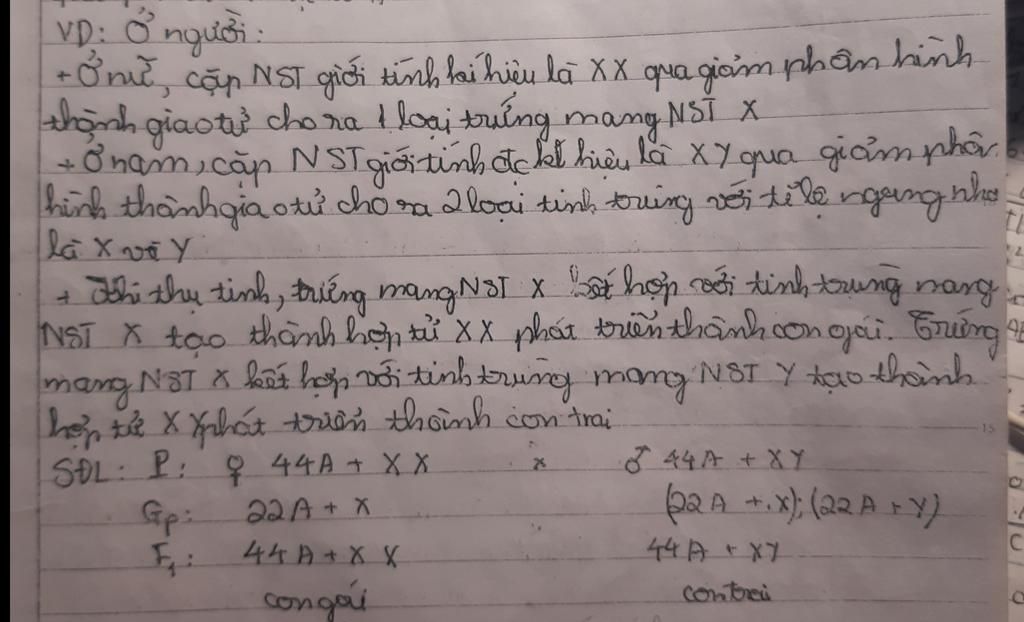 VD: Ở người:
+ Ở nữ, cặp NST giới tính kí hiệu là XX qua giảm phân hình
thành giao tử cho ra 1 loại trứng mang NST X
+ Ở nam, cặp NST giới tính đc kí hiệu là XY qua giảm phân
hình thành giao tử cho ra 2 loại tinh trùng với tỉ lệ ngang nha
là X và Y
+ Khi thụ tinh, trứng mang NST X kết hợp với tinh trùng mang
NST X tạo thành hợp tử XX phát triển thành con gái. Trứng
mang NST X kết hợp với tinh trùng mang NST Y tạo thành
hợp tử XY phát triển thành con trai
SĐL: P: ♀ 44A + XX × ♂ 44A + XY
Gp: 22A + X (22A + X); (22A + Y)
F1: 44A + XX 44A + XY
con gái con trai